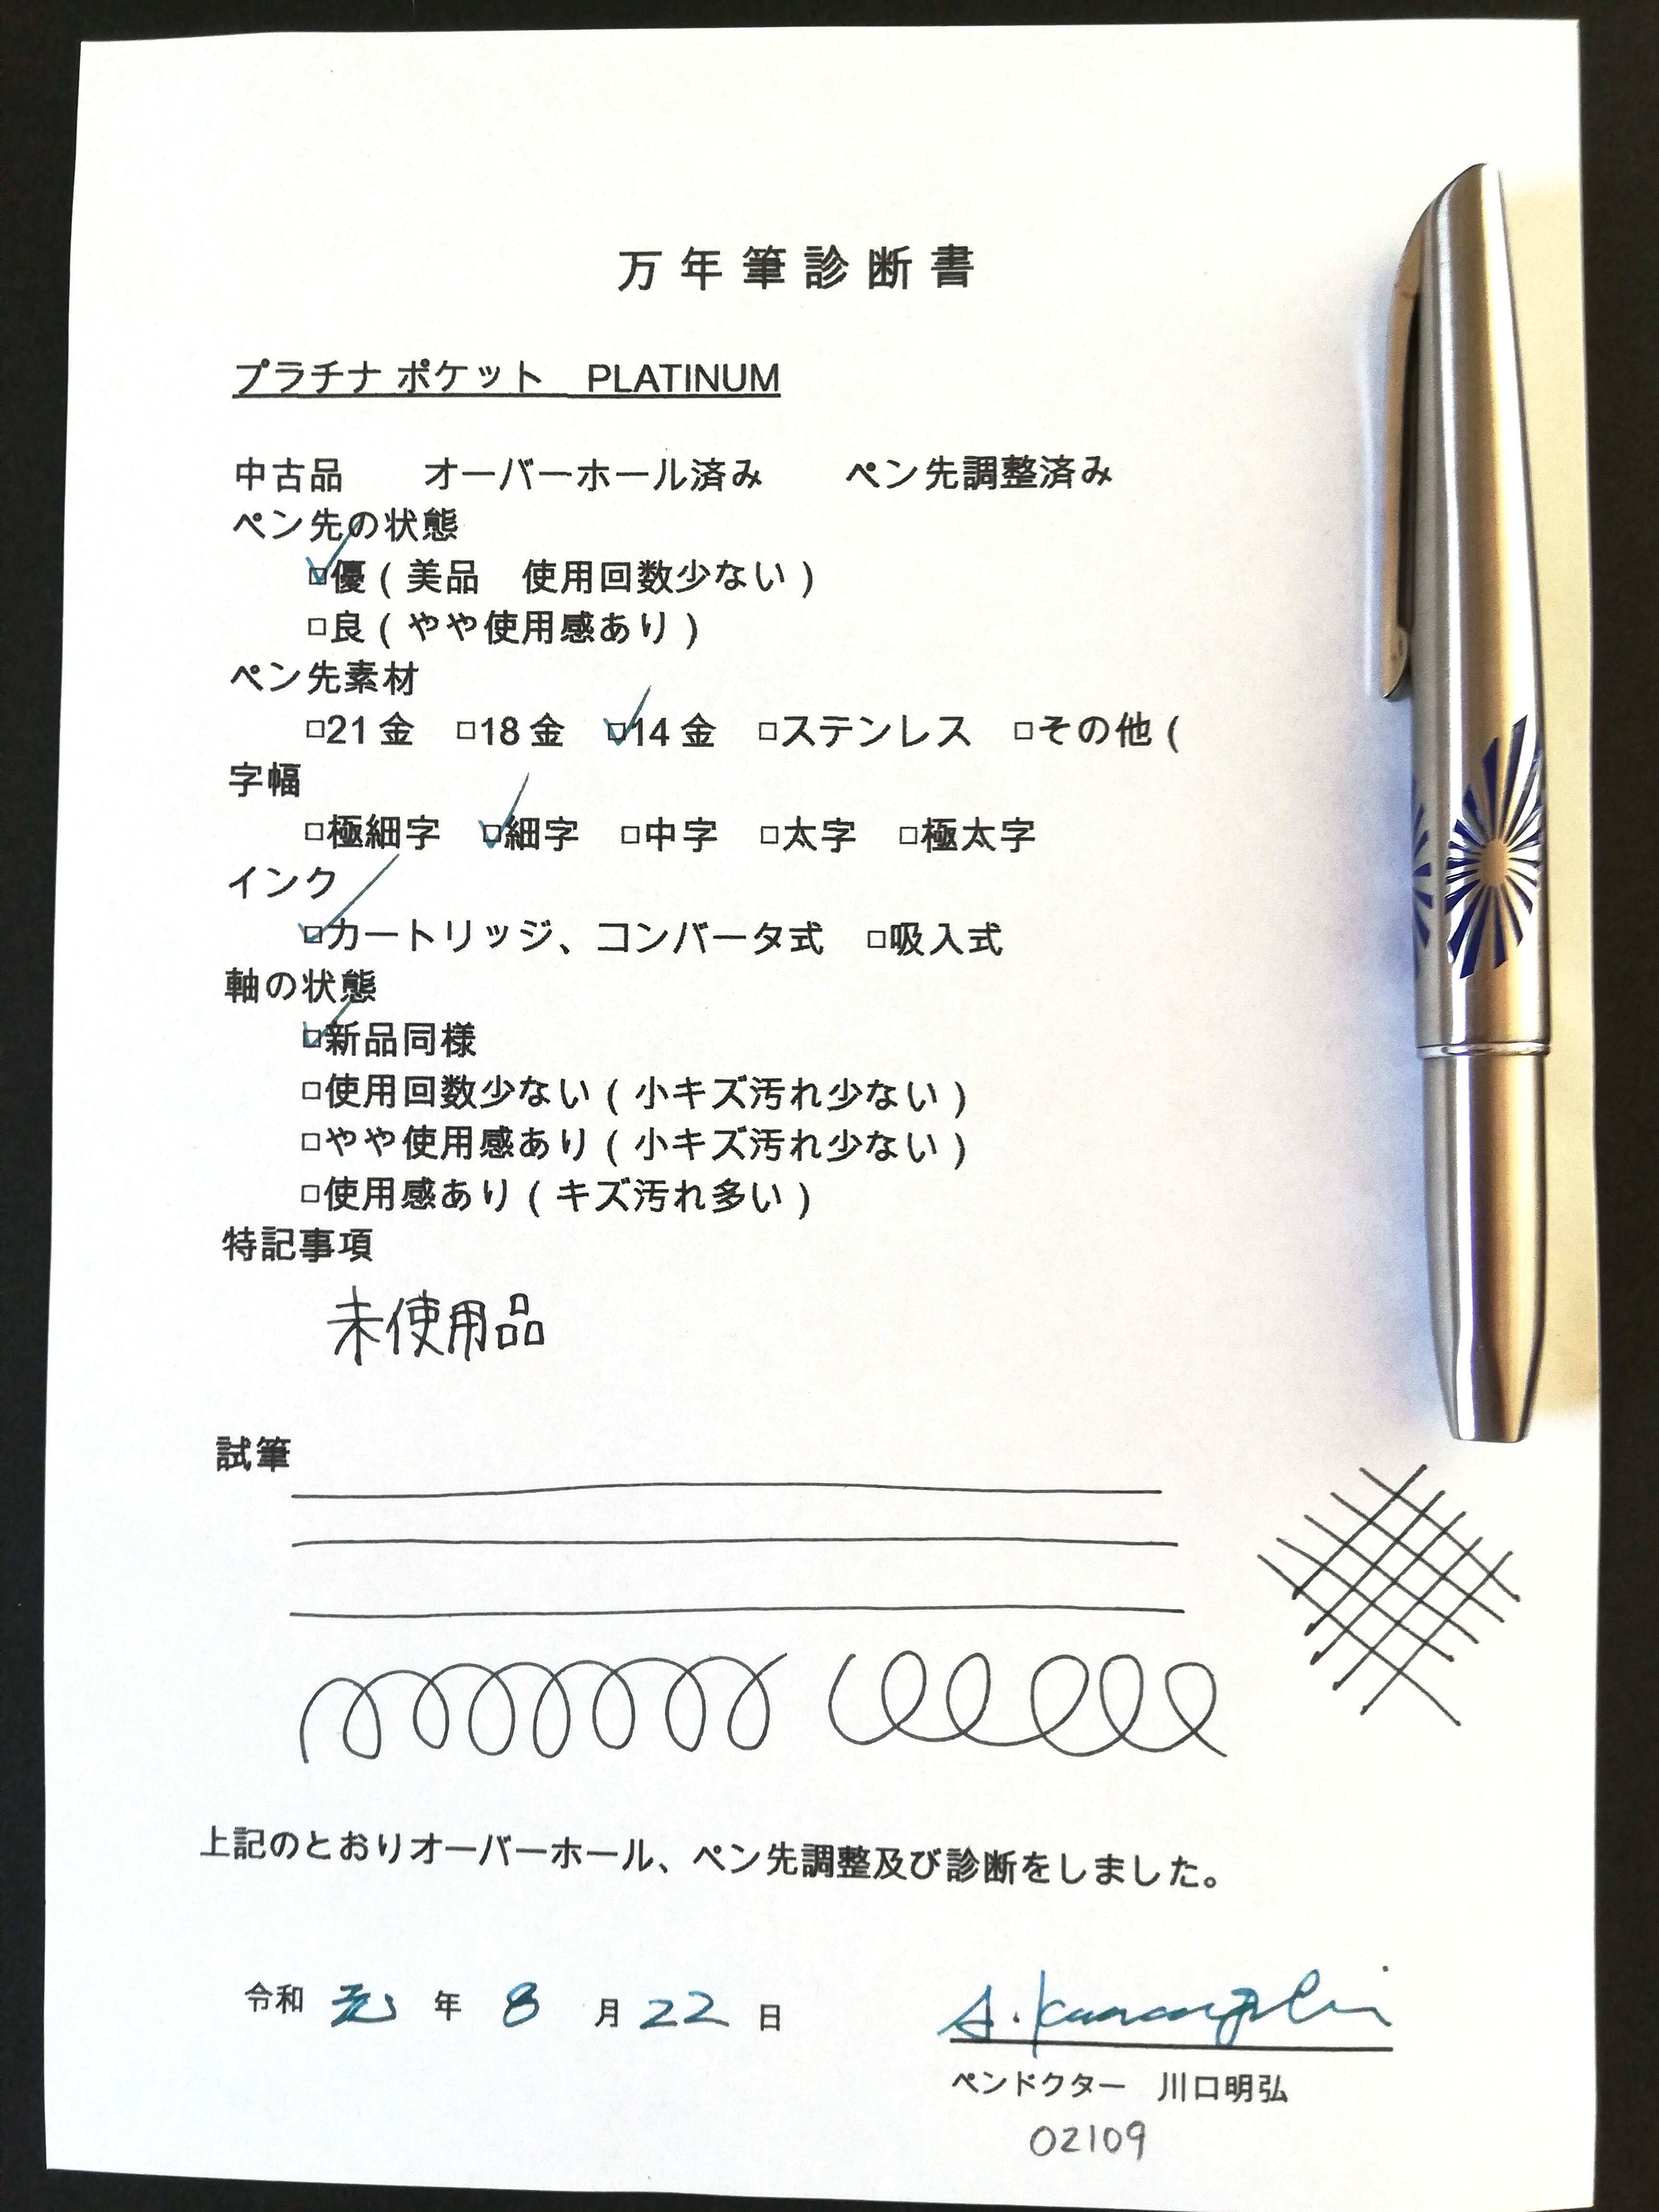 万年筆診断書
プラチナ ポケット　PLATINUM
中古品　　オーバーホール済み　　ペン先調整済み
ペン先の状態
☑優（美品　使用回数少ない）
□良（やや使用感あり）
ペン先素材
□21金　□18金　☑14金　□ステンレス　□その他（
字幅
□極細字　☑細字　□中字　□太字　□極太字
インク
☑カートリッジ、コンバータ式　□吸入式
軸の状態
☑新品同様
□使用回数少ない（小キズ汚れ少ない）
□やや使用感あり（小キズ汚れ少ない）
□使用感あり（キズ汚れ多い）
特記事項
未使用品
試筆
上記のとおりオーバーホール、ペン先調整及び診断をしました。
令和 元 年 8 月 22 日
A. Kawaguchi
ペンドクター　川口明弘
02109